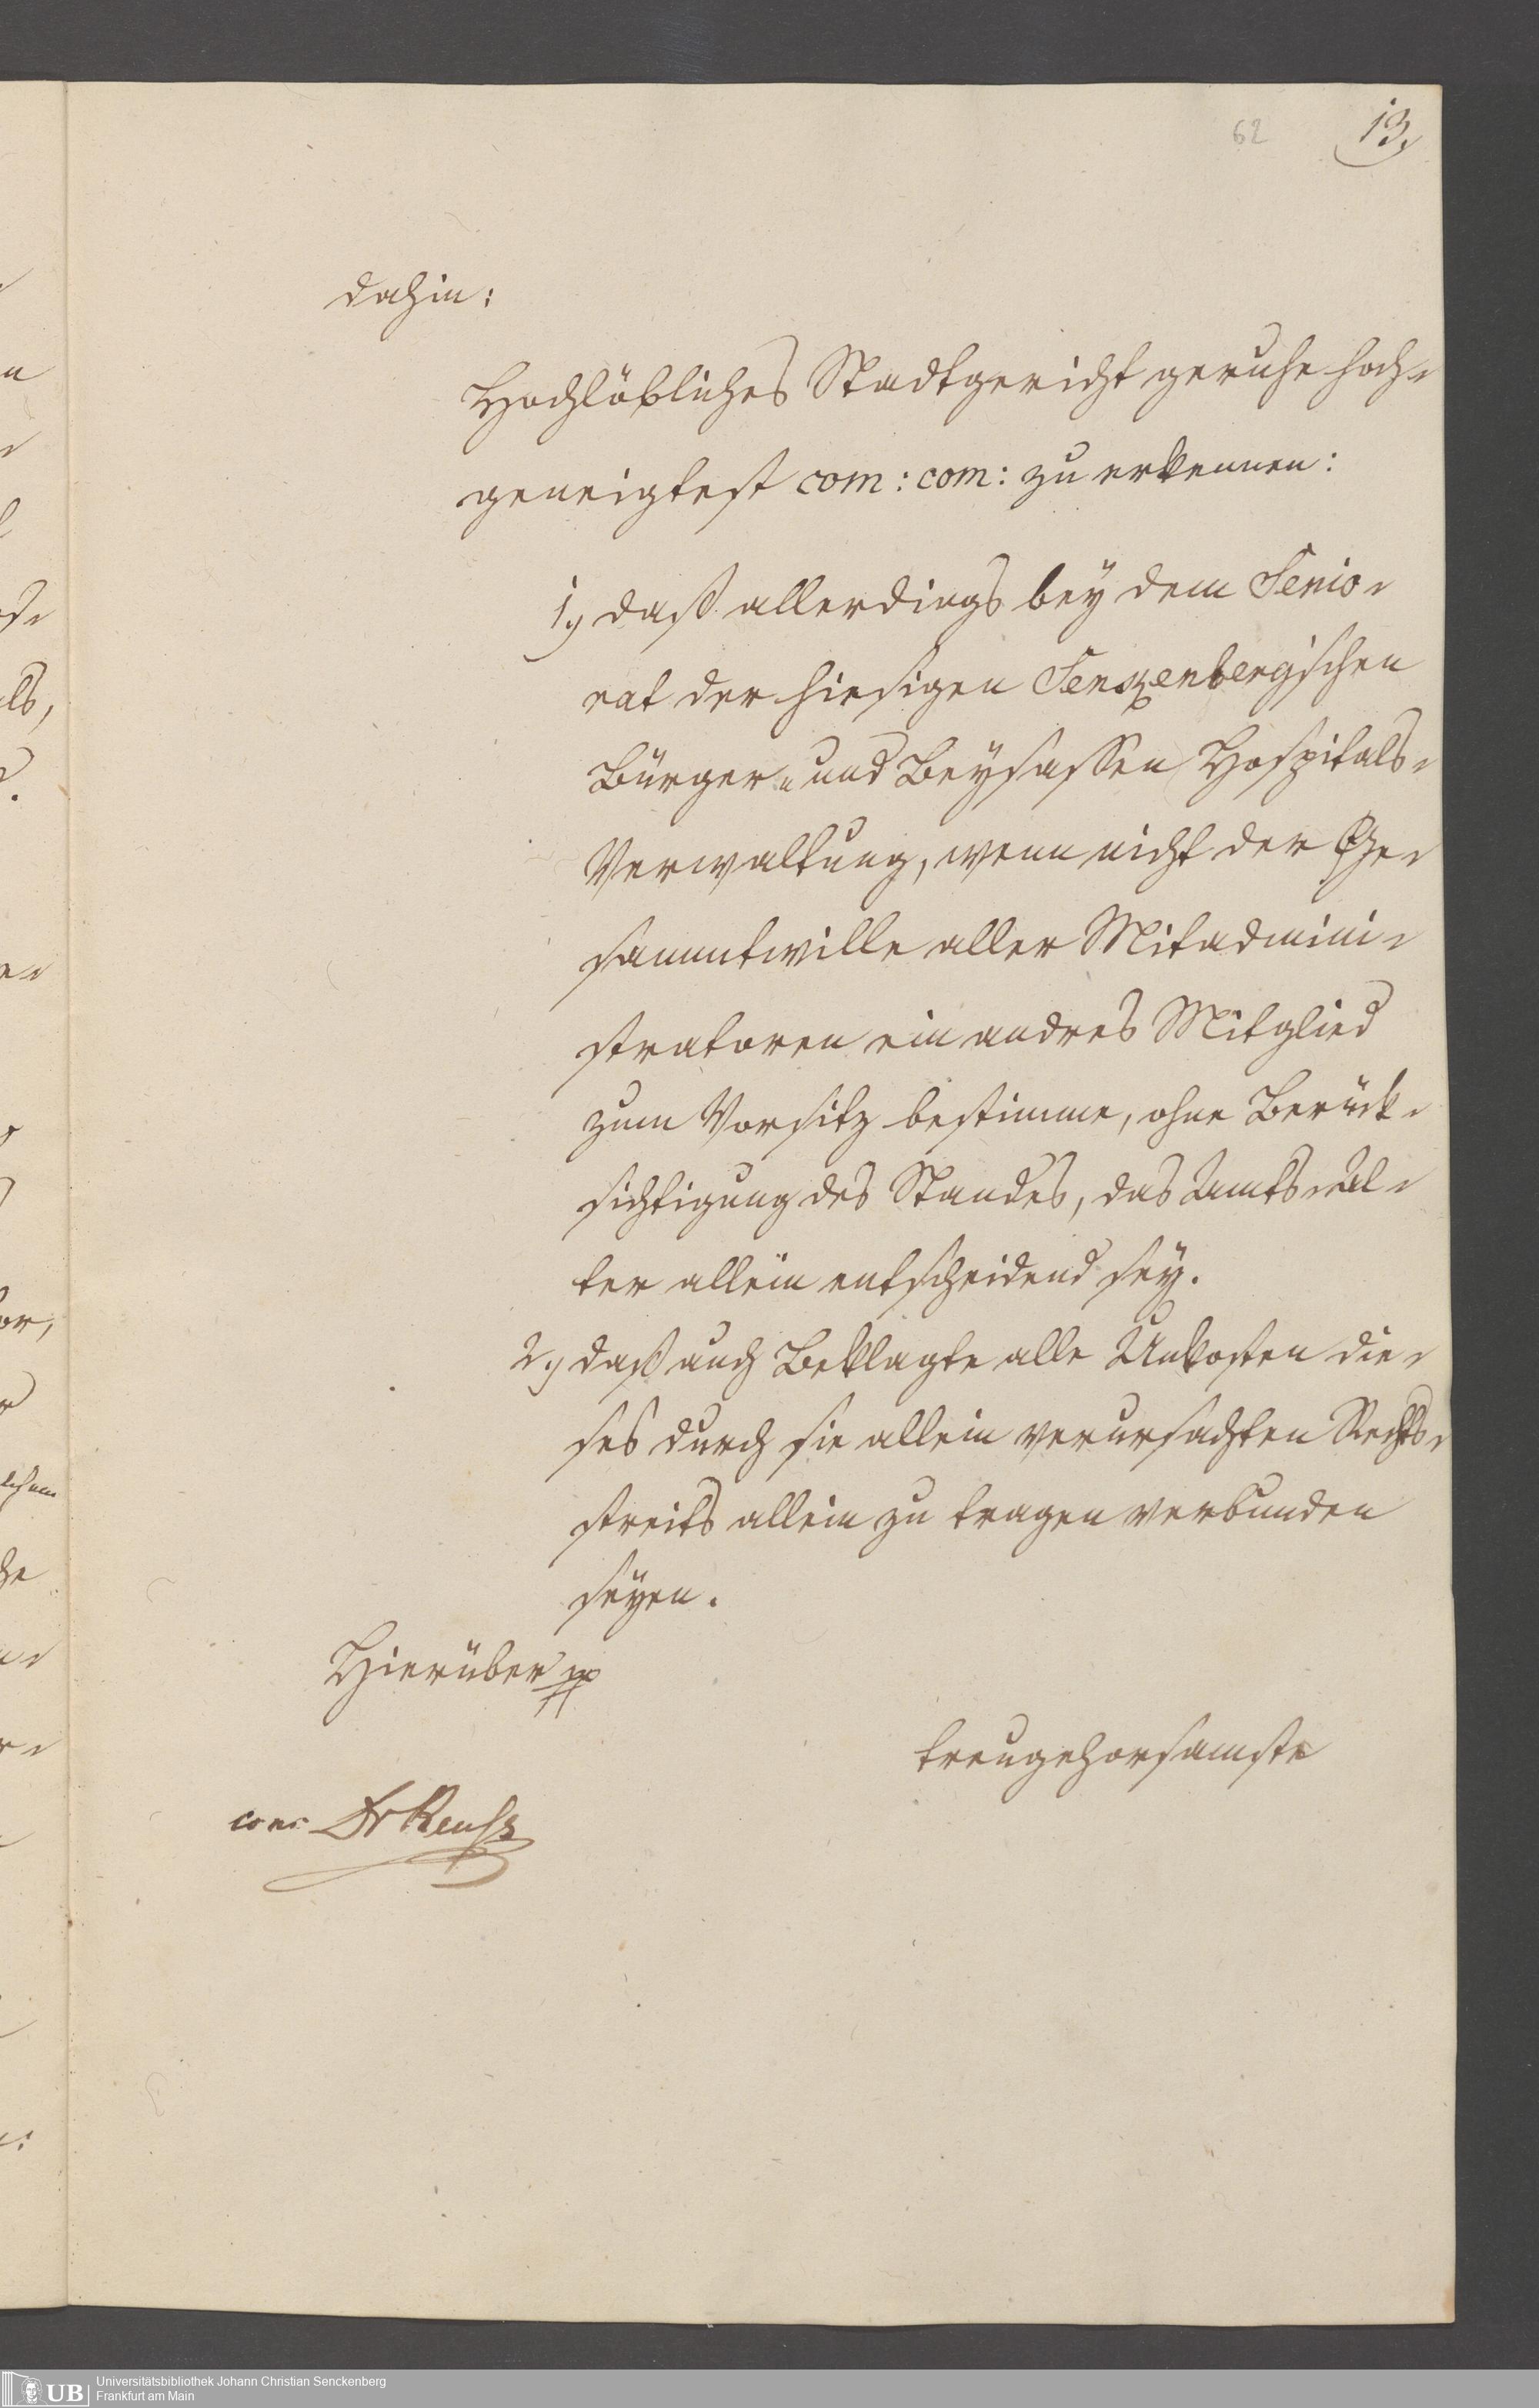 62
13,
dahin:
Hochlöbliches Stadtgericht geruhe hoch-
geneigtest com: com: zu erkennen:
1.) daß allerdings bey dem Senio-
rat der hiesigen Senckenberg'schen
Bürger- und Beysassen Hospitals-
Verwaltung, wenn nicht der Ge-
sammtwille aller Mitadmini-
stratoren ein andres Mitglied
zum Vorsitz bestimme, ohne Berück-
sichtigung des Standes, das Amts-Al-
ter allein entscheidend sey.
2.) daß auch Beklagte alle Unkosten die-
ses durch sie allein verursachten Rechts-
streits allein zu tragen verbunden
seyen.
Hierüber pp
treugehorsamste
conc Dr Reuss
UB
Universitätsbibliothek Johann Christian Senckenberg
Frankfurt am Main